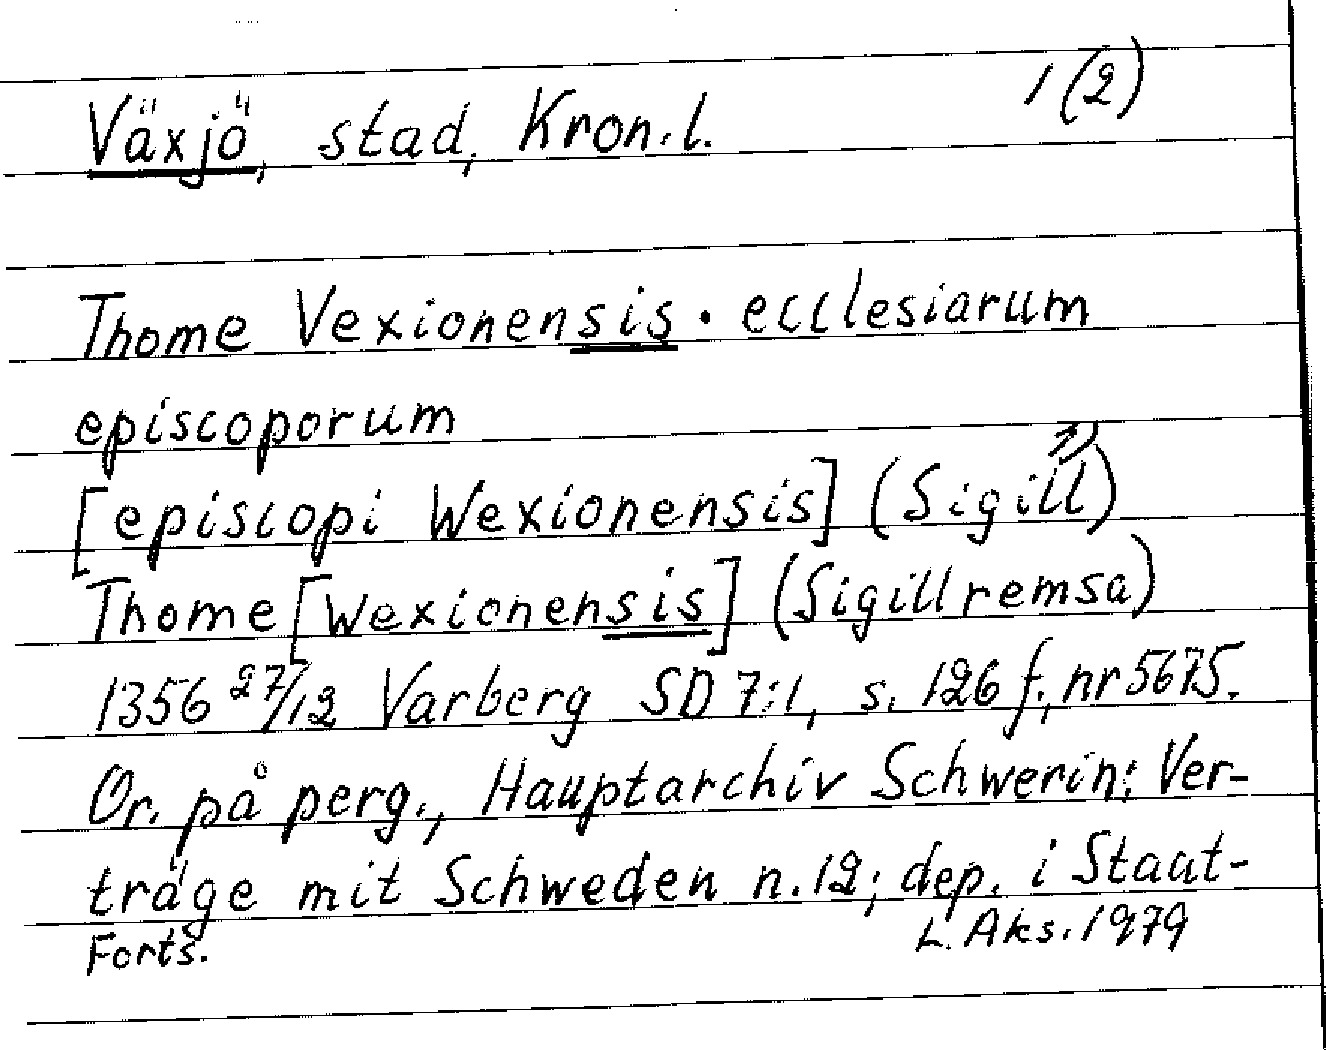 Växjö, stad, Kron.l. 1(2)
Thome Vexionensis · ecclesiarum
episcoporum
[episcopi Wexionensis] (Sigill)
Thome [Wexionensis] (Sigillremsa)
1356 27/12 Varberg SD 7:1, s. 126 f., nr 5675.
Or. på perg., Hauptarchiv Schwerin: Ver-
träge mit Schweden n. 12; dep. i Staat-
Forts. L. Aks. 1979